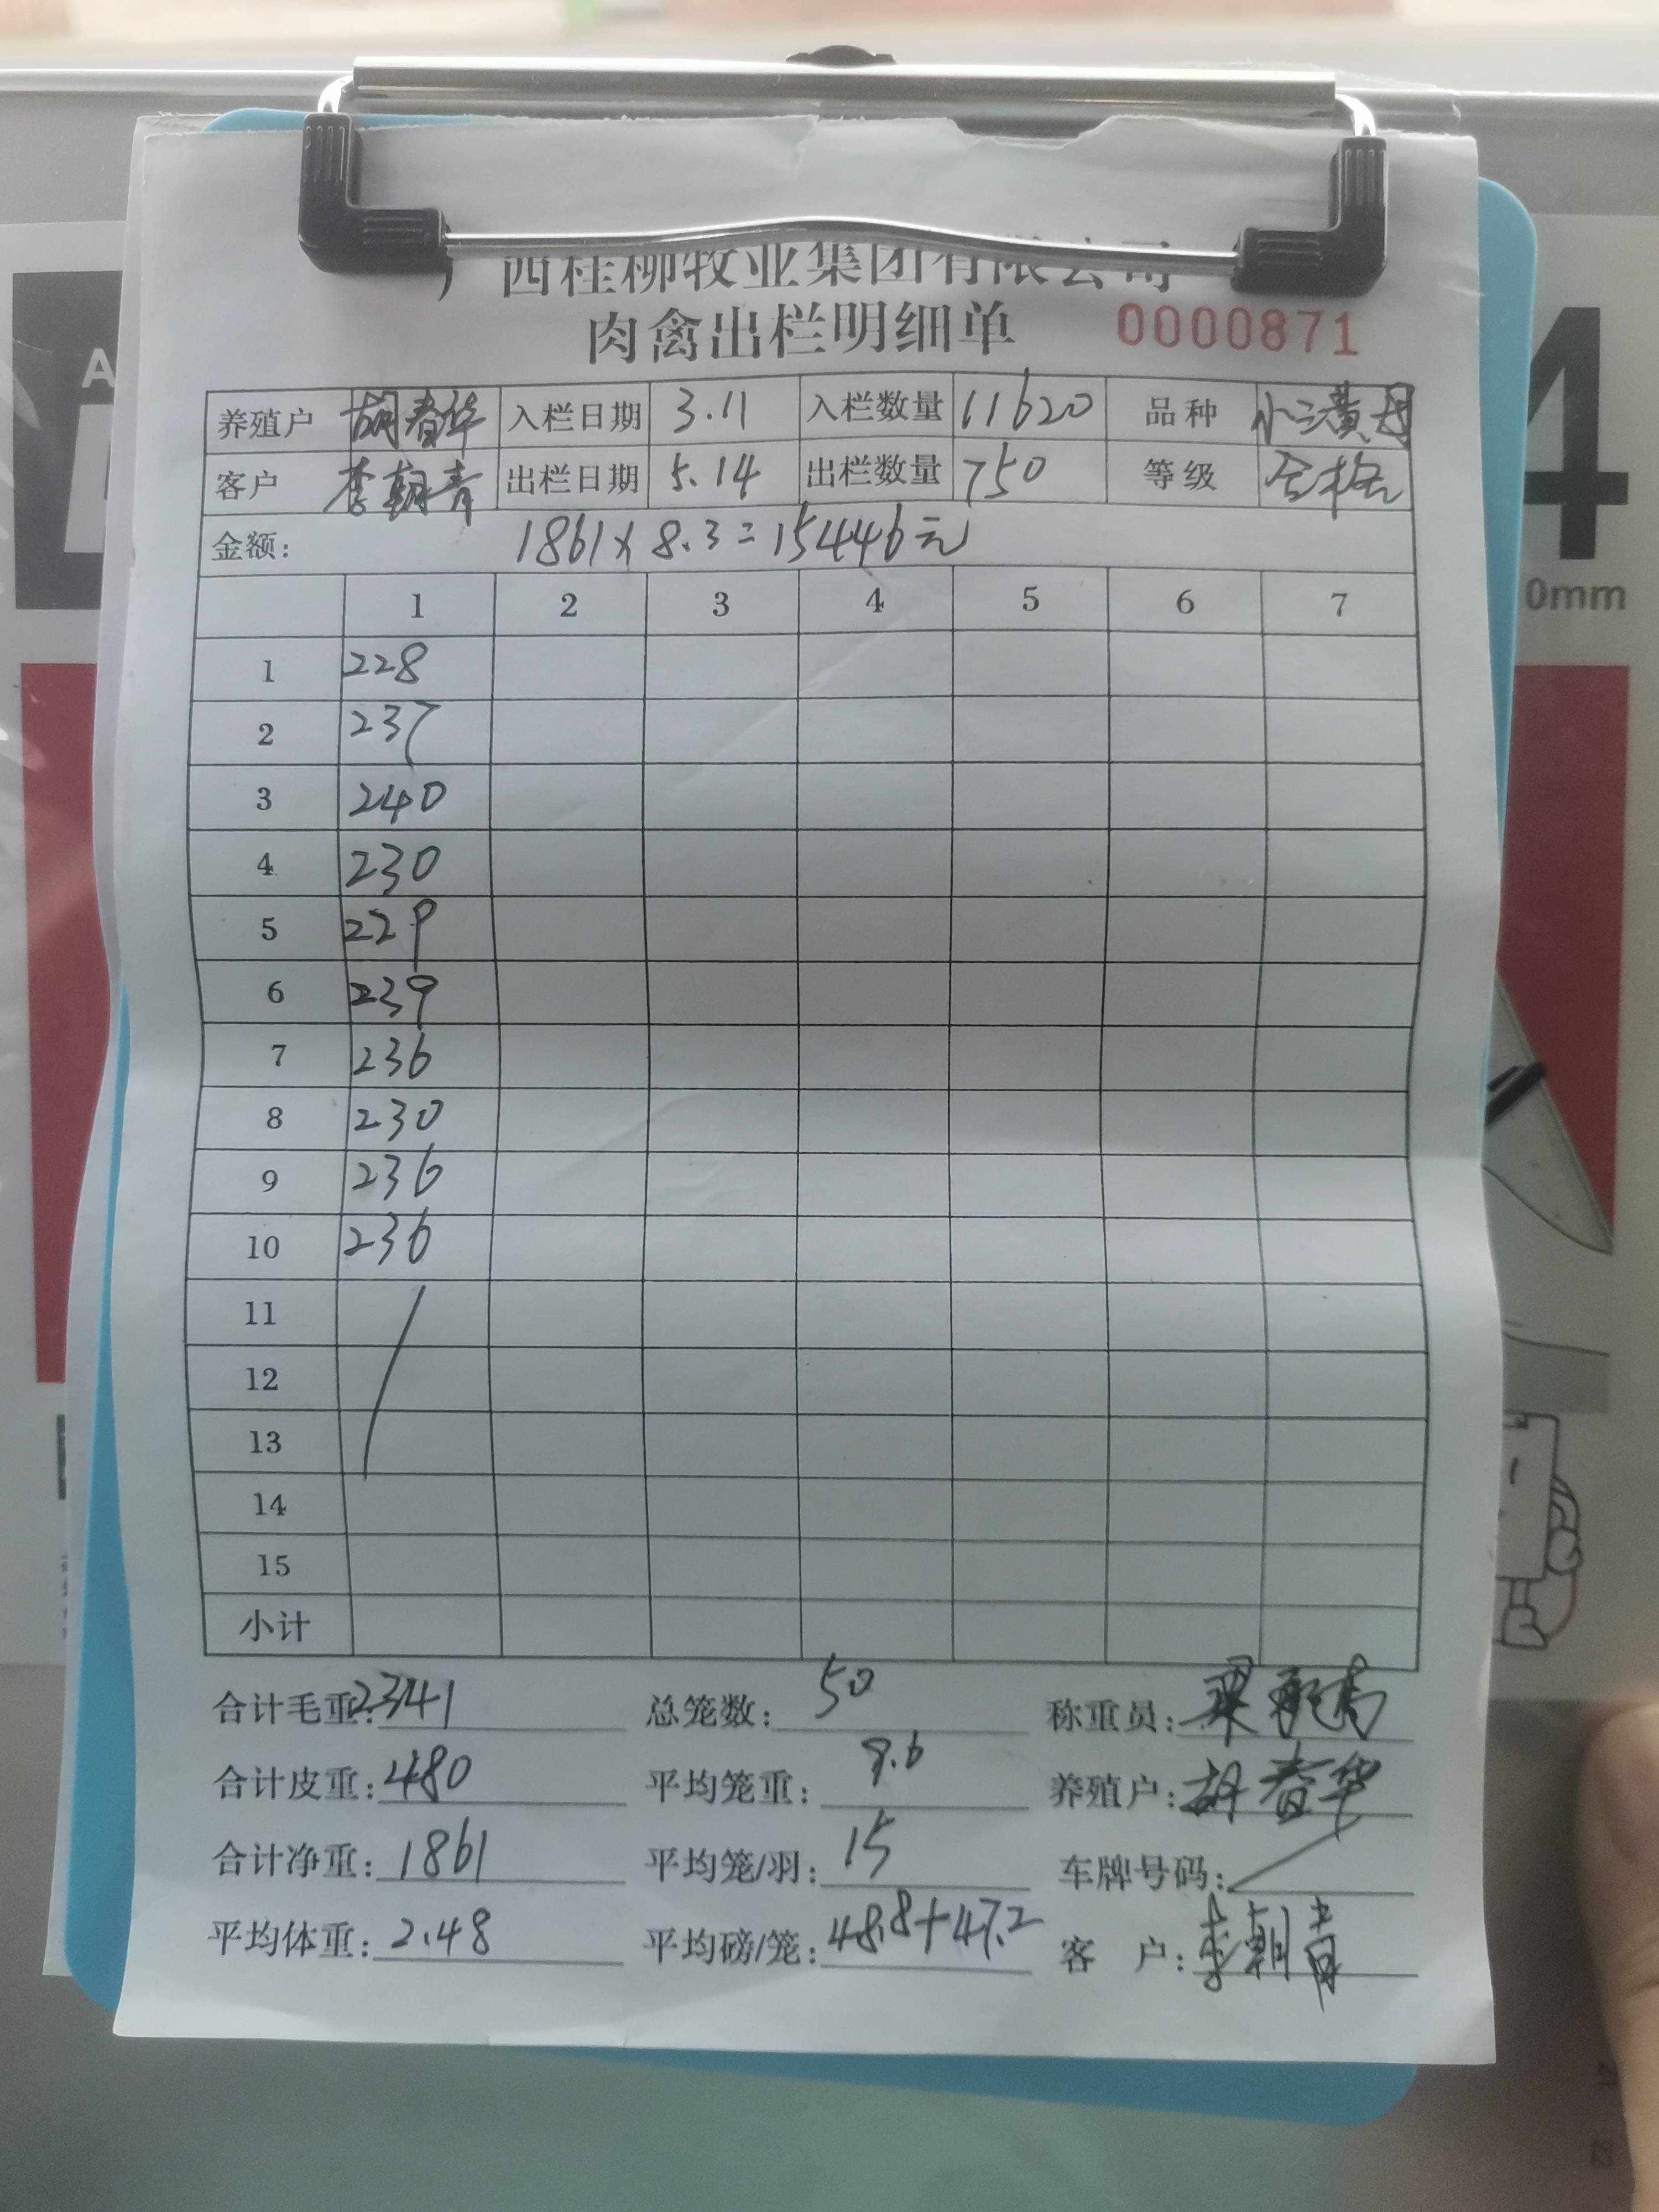 广西桂柳牧业集团有限公司
肉禽出栏明细单 0000871
养殖户 胡春华 入栏日期 3.11 入栏数量 11620 品种 小三黄母
客户 李朝青 出栏日期 5.14 出栏数量 750 等级 合格
金额: 1861×8.3=15446元
1 2 3 4 5 6 7
1 228
2 237
3 240
4 230
5 229
6 239
7 236
8 230
9 236
10 236
11
12
13
14
15
小计
合计毛重:2341 总笼数:50 称重员:
合计皮重:480 平均笼重:9.6 养殖户:胡春华
合计净重:1861 平均笼/羽:15 车牌号码:
平均体重:2.48 平均磅/笼:48.8+47.2 客 户:李朝青
0mm